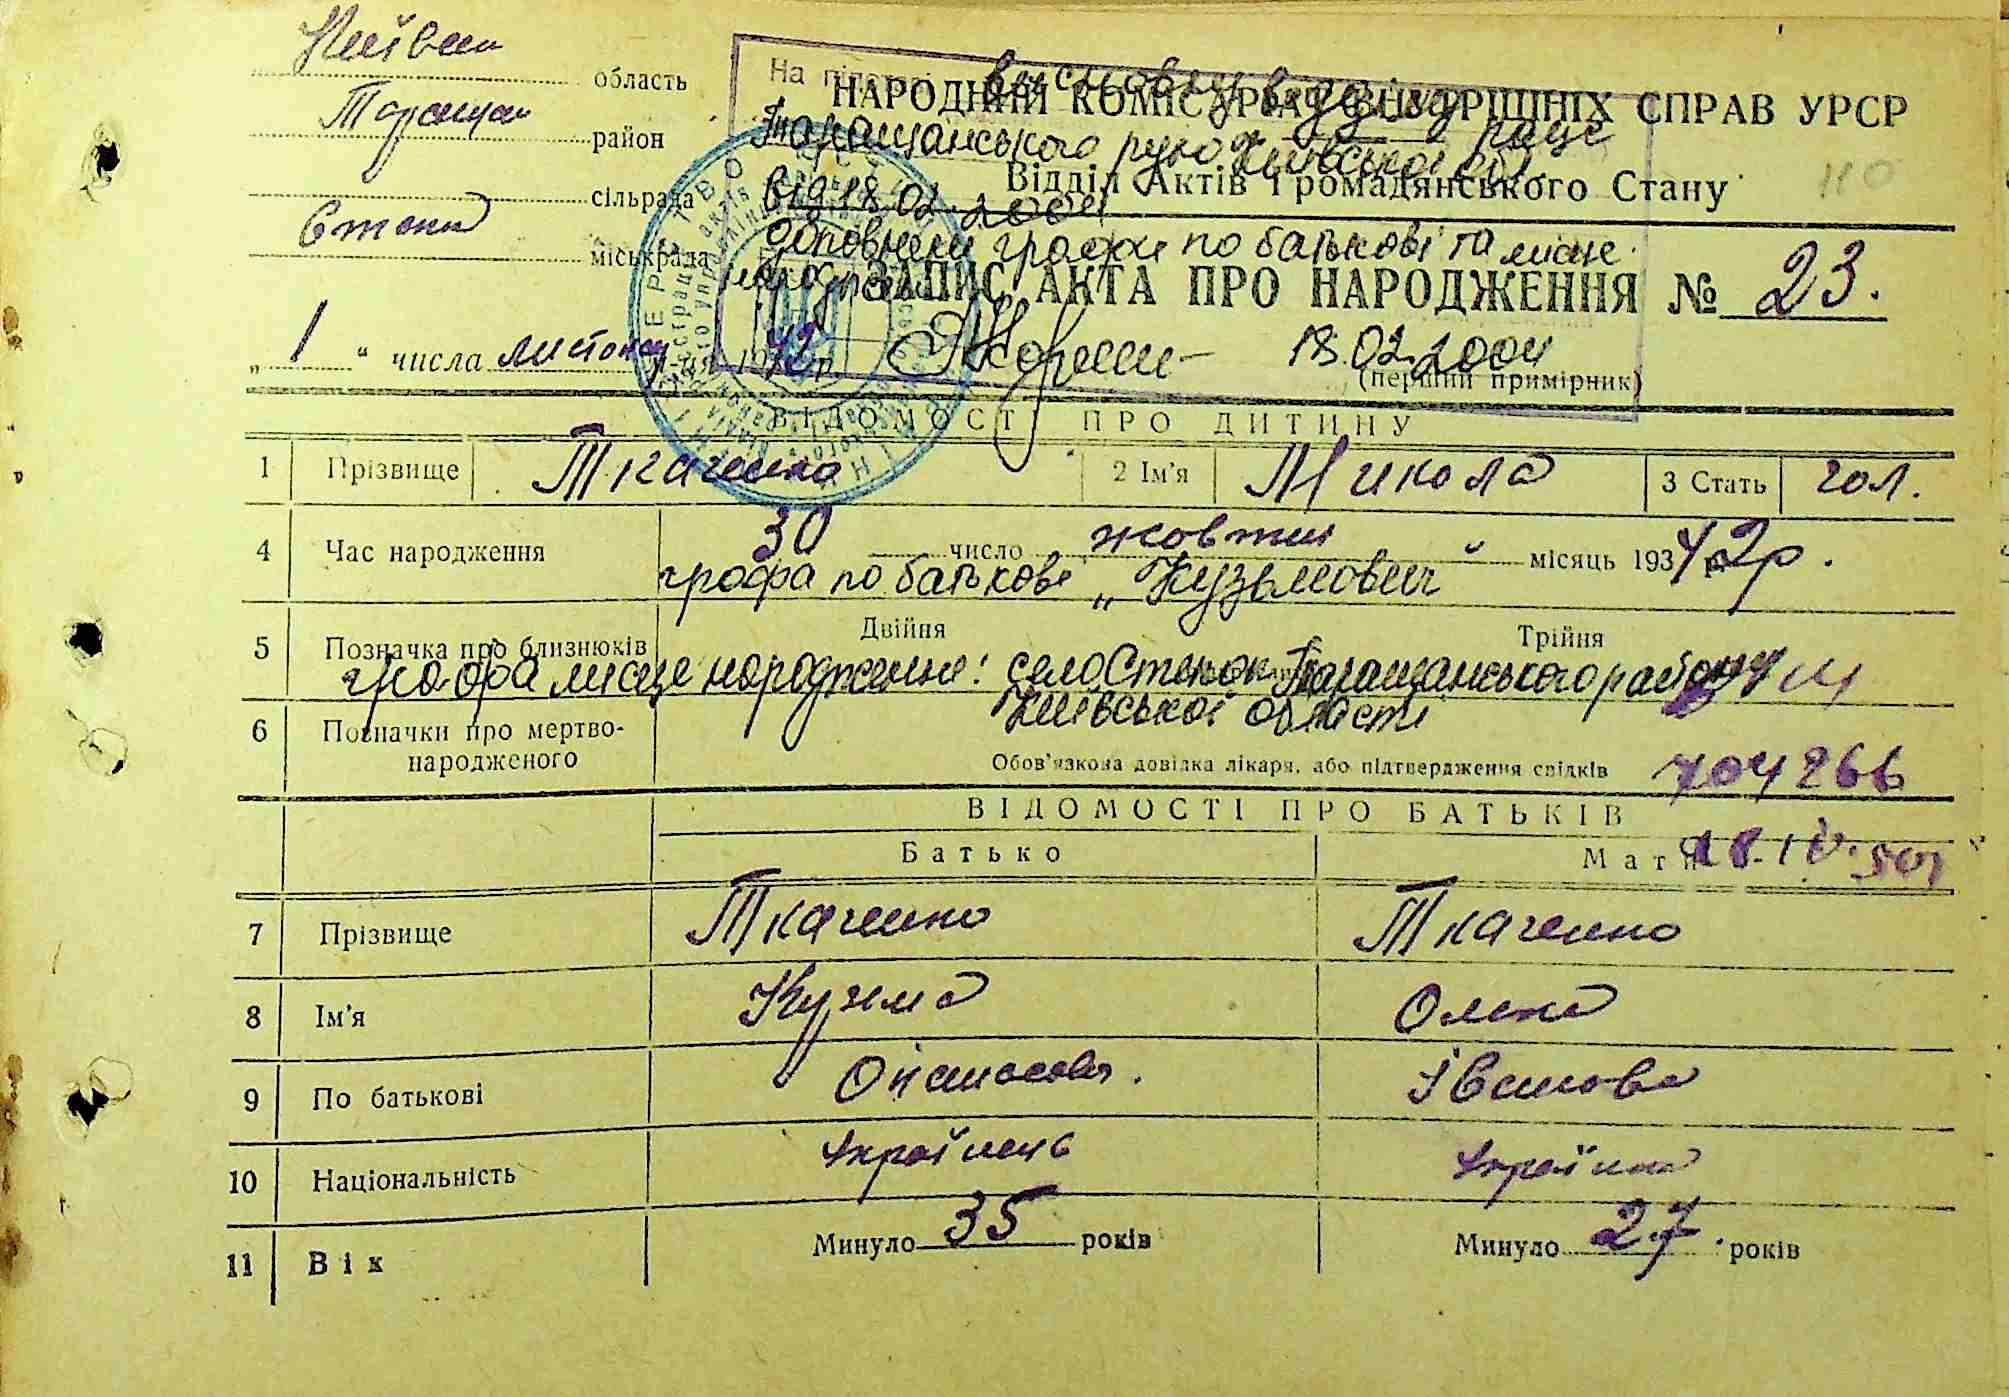 Київськ область
Таращан район
сільрада
Степок міськрада
НАРОДНИЙ КОМІСАРІАТ ВНУТРІШНІХ СПРАВ УРСР
Відділ Актів Громадянського Стану
110
На підставі висновку відділу рацс
Таращанського рую Київської обл.
від 18.02.2004
доповнені графи по батькові та місце
народження
18.02.2004
ЗАПИС АКТА ПРО НАРОДЖЕННЯ № 23.
„1“ числа листопад м-ця 1942 р.
(перший примірник)
ВІДОМОСТІ ПРО ДИТИНУ
1 Прізвище Ткаченко 2 Ім'я Микола 3 Стать чол.
4 Час народження 30 число жовтня місяць 193 42р.
графа по батькові „Кузьмович
5 Позначка про близнюків Двійня Трійня
графа місце народження: село Степок Таращанського району
Київської області
6 Позначки про мертвонародженого
Обов'язкова довідка лікаря, або підтвердження свідків
704266
ВІДОМОСТІ ПРО БАТЬКІВ
Батько Мати
7 Прізвище Ткаченко Ткаченко
8 Ім'я Кузьма Олена
9 По батькові Опанасович. Іванова
10 Національність Українець Українка
11 Вік Минуло 35 років Минуло 27 років